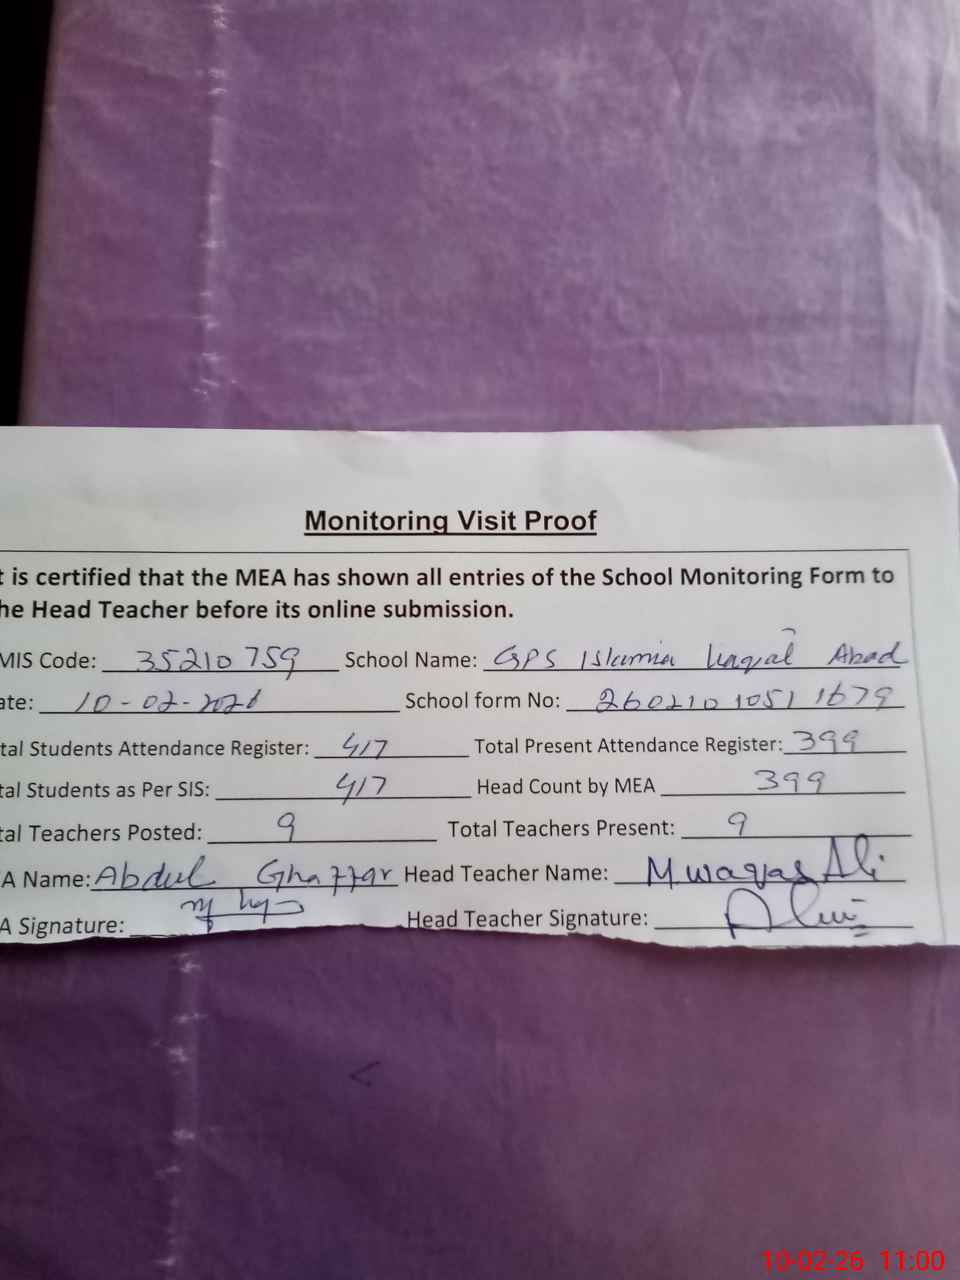 Monitoring Visit Proof
t is certified that the MEA has shown all entries of the School Monitoring Form to
he Head Teacher before its online submission.
MIS Code: 35210759 School Name: GPS Islamia Liaqat Abad
ate: 10-02-2026 School form No: 2602101051 1679
tal Students Attendance Register: 417 Total Present Attendance Register: 399
tal Students as Per SIS: 417 Head Count by MEA 399
tal Teachers Posted: 9 Total Teachers Present: 9
A Name: Abdul Ghaffar Head Teacher Name: M waqas Ali
A Signature: Head Teacher Signature:
10-02-26 11:00